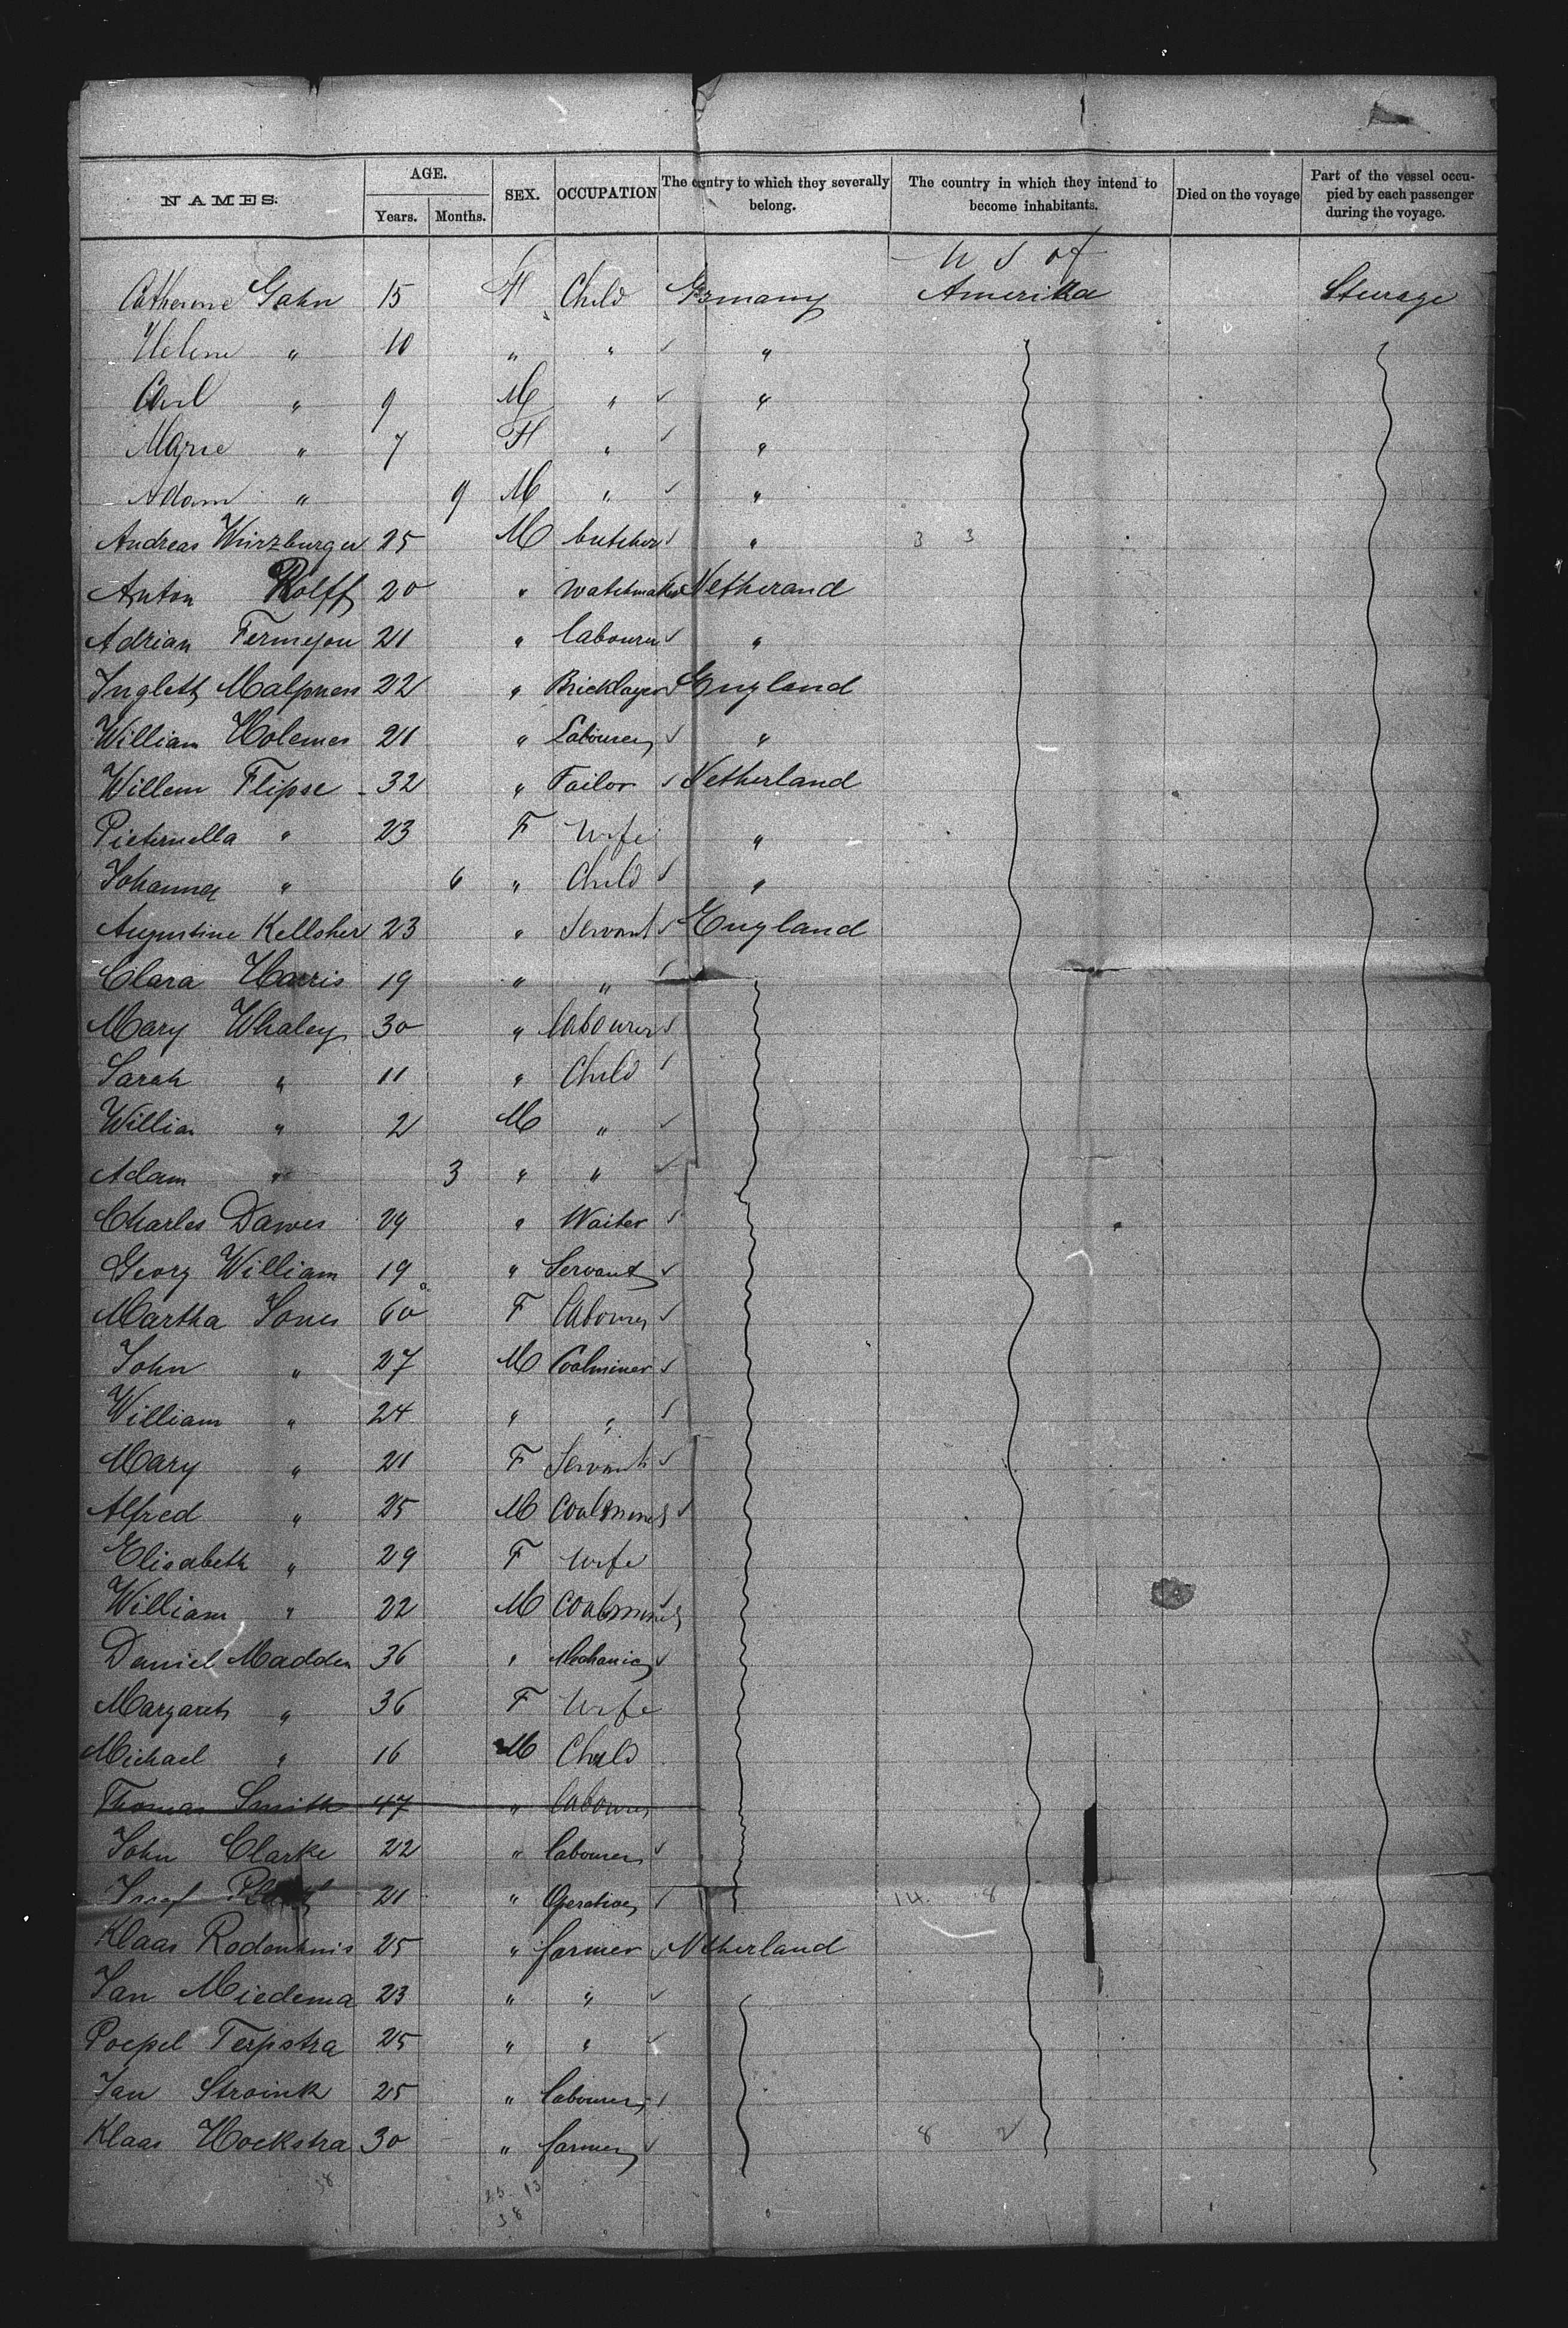 NAMES. AGE. Years. Months. SEX. OCCUPATION The country to which they severally belong. The country in which they intend to become inhabitants. Died on the voyage Part of the vessel occupied by each passenger during the voyage.
U S of
Catherine Gahn 15 F Child Germany Amerika Steerage
Helene " 10 " " ✓ "
Carl " 9 M " ✓ "
Marie " 7 F " ✓ "
Adam " 9 M " ✓ "
Andreas Würzburger 25 M butcher ✓ " 3 3
Anton Rolff 20 " watchmaker Netherand
Adrian Fermeyou 21 " labourer ✓ "
Inglett Malpness 22 " Bricklayer ✓ England
William Holemes 21 " Labourer ✓ "
Willem Flipse 32 " Tailor ✓ Netherland
Pieternella " 23 F Wife "
Johanna " 6 " Child ✓ "
Augustine Kellsher 23 " Servant ✓ England
Clara Harris 19 " " ✓
Mary Whaley 30 " labourer ✓
Sarah " 11 " Child ✓
William " 2 M " ✓
Adam " 3 " " ✓
Charles Dawes 29 " Waiter ✓
Georg William 19 " Servant ✓
Martha Jones 60 F labourer ✓
John " 27 M Coalminer ✓
William " 24 " " ✓
Mary " 21 F Servant ✓
Alfred " 25 M Coalminer ✓
Elisabeth " 29 F Wife
William " 22 M Coalminer ✓
Daniel Madden 36 " Mechanic ✓
Margareth " 36 F Wife
Michael " 16 M Child
Thomas Smith 47 " labourer
John Clarke 22 " labourer ✓
21 " Operative ✓ 14 8
Klaas Rodenhuis 25 " farmer ✓ Netherland
Jan Miedema 23 " " ✓
Poepel Terpstra 25 " " ✓
Jan Stroink 25 " labourer ✓
Klaas Hoekstra 30 " farmer ✓ 8 2
38 25 13
38